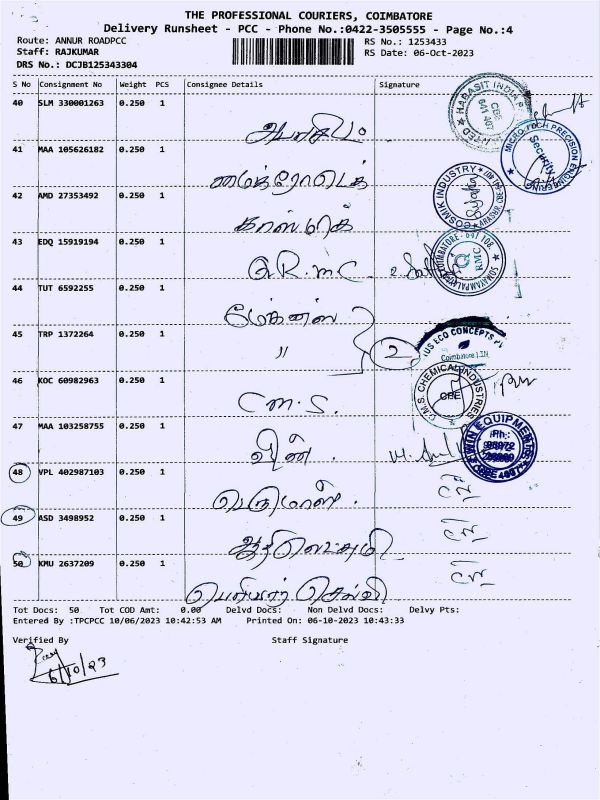 THE PROFESSIONAL COURIERS, COIMBATORE
Delivery Runsheet - PCC - Phone No.:0422-3505555 - Page No.:4
Route: ANNUR ROADPCC
Staff: RAJKUMAR
DRS No.: DCJB125343304
RS No.: 1253433
RS Date: 06-Oct-2023
S No Consignment No Weight PCS Consignee Details Signature
40 SLM 330001263 0.250 1
HARASIT INDIA
CBE
641 407
41 MAA 105626182 0.250 1
மைக்ரோடெக்
MICRO TECH PRECISION ENGINEERING
Security
42 AMD 27353492 0.250 1
காஸ்மிக்
COSMIK INDUSTRY
43 EDQ 15919194 0.250 1
Q.R.M.C.
COIMBATORE - 641 108
RMC
44 TUT 6592255 0.250 1
45 TRP 1372264 0.250 1
"
2
ECO CONCEPTS
Coimbatore
46 KOC 60982963 0.250 1
C.M.S.
C.M.S. CHEMICAL INDUSTRIES
CBE
47 MAA 103258755 0.250 1
EQUIPMENTS
Ph.:
48 VPL 402987103 0.250 1
பெருமாள்.
49 ASD 3498952 0.250 1
ஆதிலெட்சுமி
50 KMU 2637209 0.250 1
Tot Docs: 50 Tot COD Amt: 0.00 Delvd Docs: Non Delvd Docs: Delvy Pts:
Entered By :TPCPCC 10/06/2023 10:42:53 AM Printed On: 06-10-2023 10:43:33
Verified By Staff Signature
6/10/23